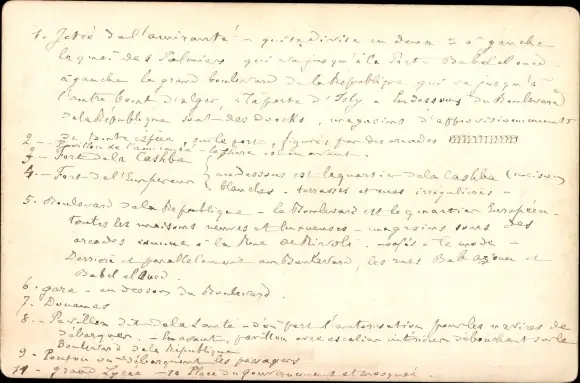 1. Jetée de l'amirauté - qui se divise en deux = à gauche
le quai des Palmiers qui va jusqu'à la Porte Babeloued -
à gauche le grand boulevard de la République qui va jusqu'à
l'autre bout d'alger, à la porte d'Isly - En dessous du Boulevard
de la République sont des Docks, magasins d'approvisionnement
de toute espèce, sur le port, figurés par des arcades
2 - Pavillon de l'amirauté - le phare est en avant.
3 - Fort de la Cashba
4. - Fort de l'Empereur
au dessous est le quartier de la Cashba (maisons
blanches - terrasses et rues irrégulières -
5. Boulevard de la République - le Boulevard est le quartier Européen -
toutes les maisons neuves et luxueuses - magasins sous des
arcades comme à la Rue de Rivoli - cafés à la mode -
Derrière et parallèlement au Boulevard, les rues Bab azoun et
Babel oued.
6. gare - en dessous du Boulevard.
7. Douanes
8. - Pavillon dit de la Santé - d'où part l'autorisation pour les navires de
débarquer - pavillon avec escalier intérieur débouchant sur le
Boulevard de la République
9 - Ponton où débarquent les passagers
- grand Lycée - 10 Place du Gouvernement et mosquée